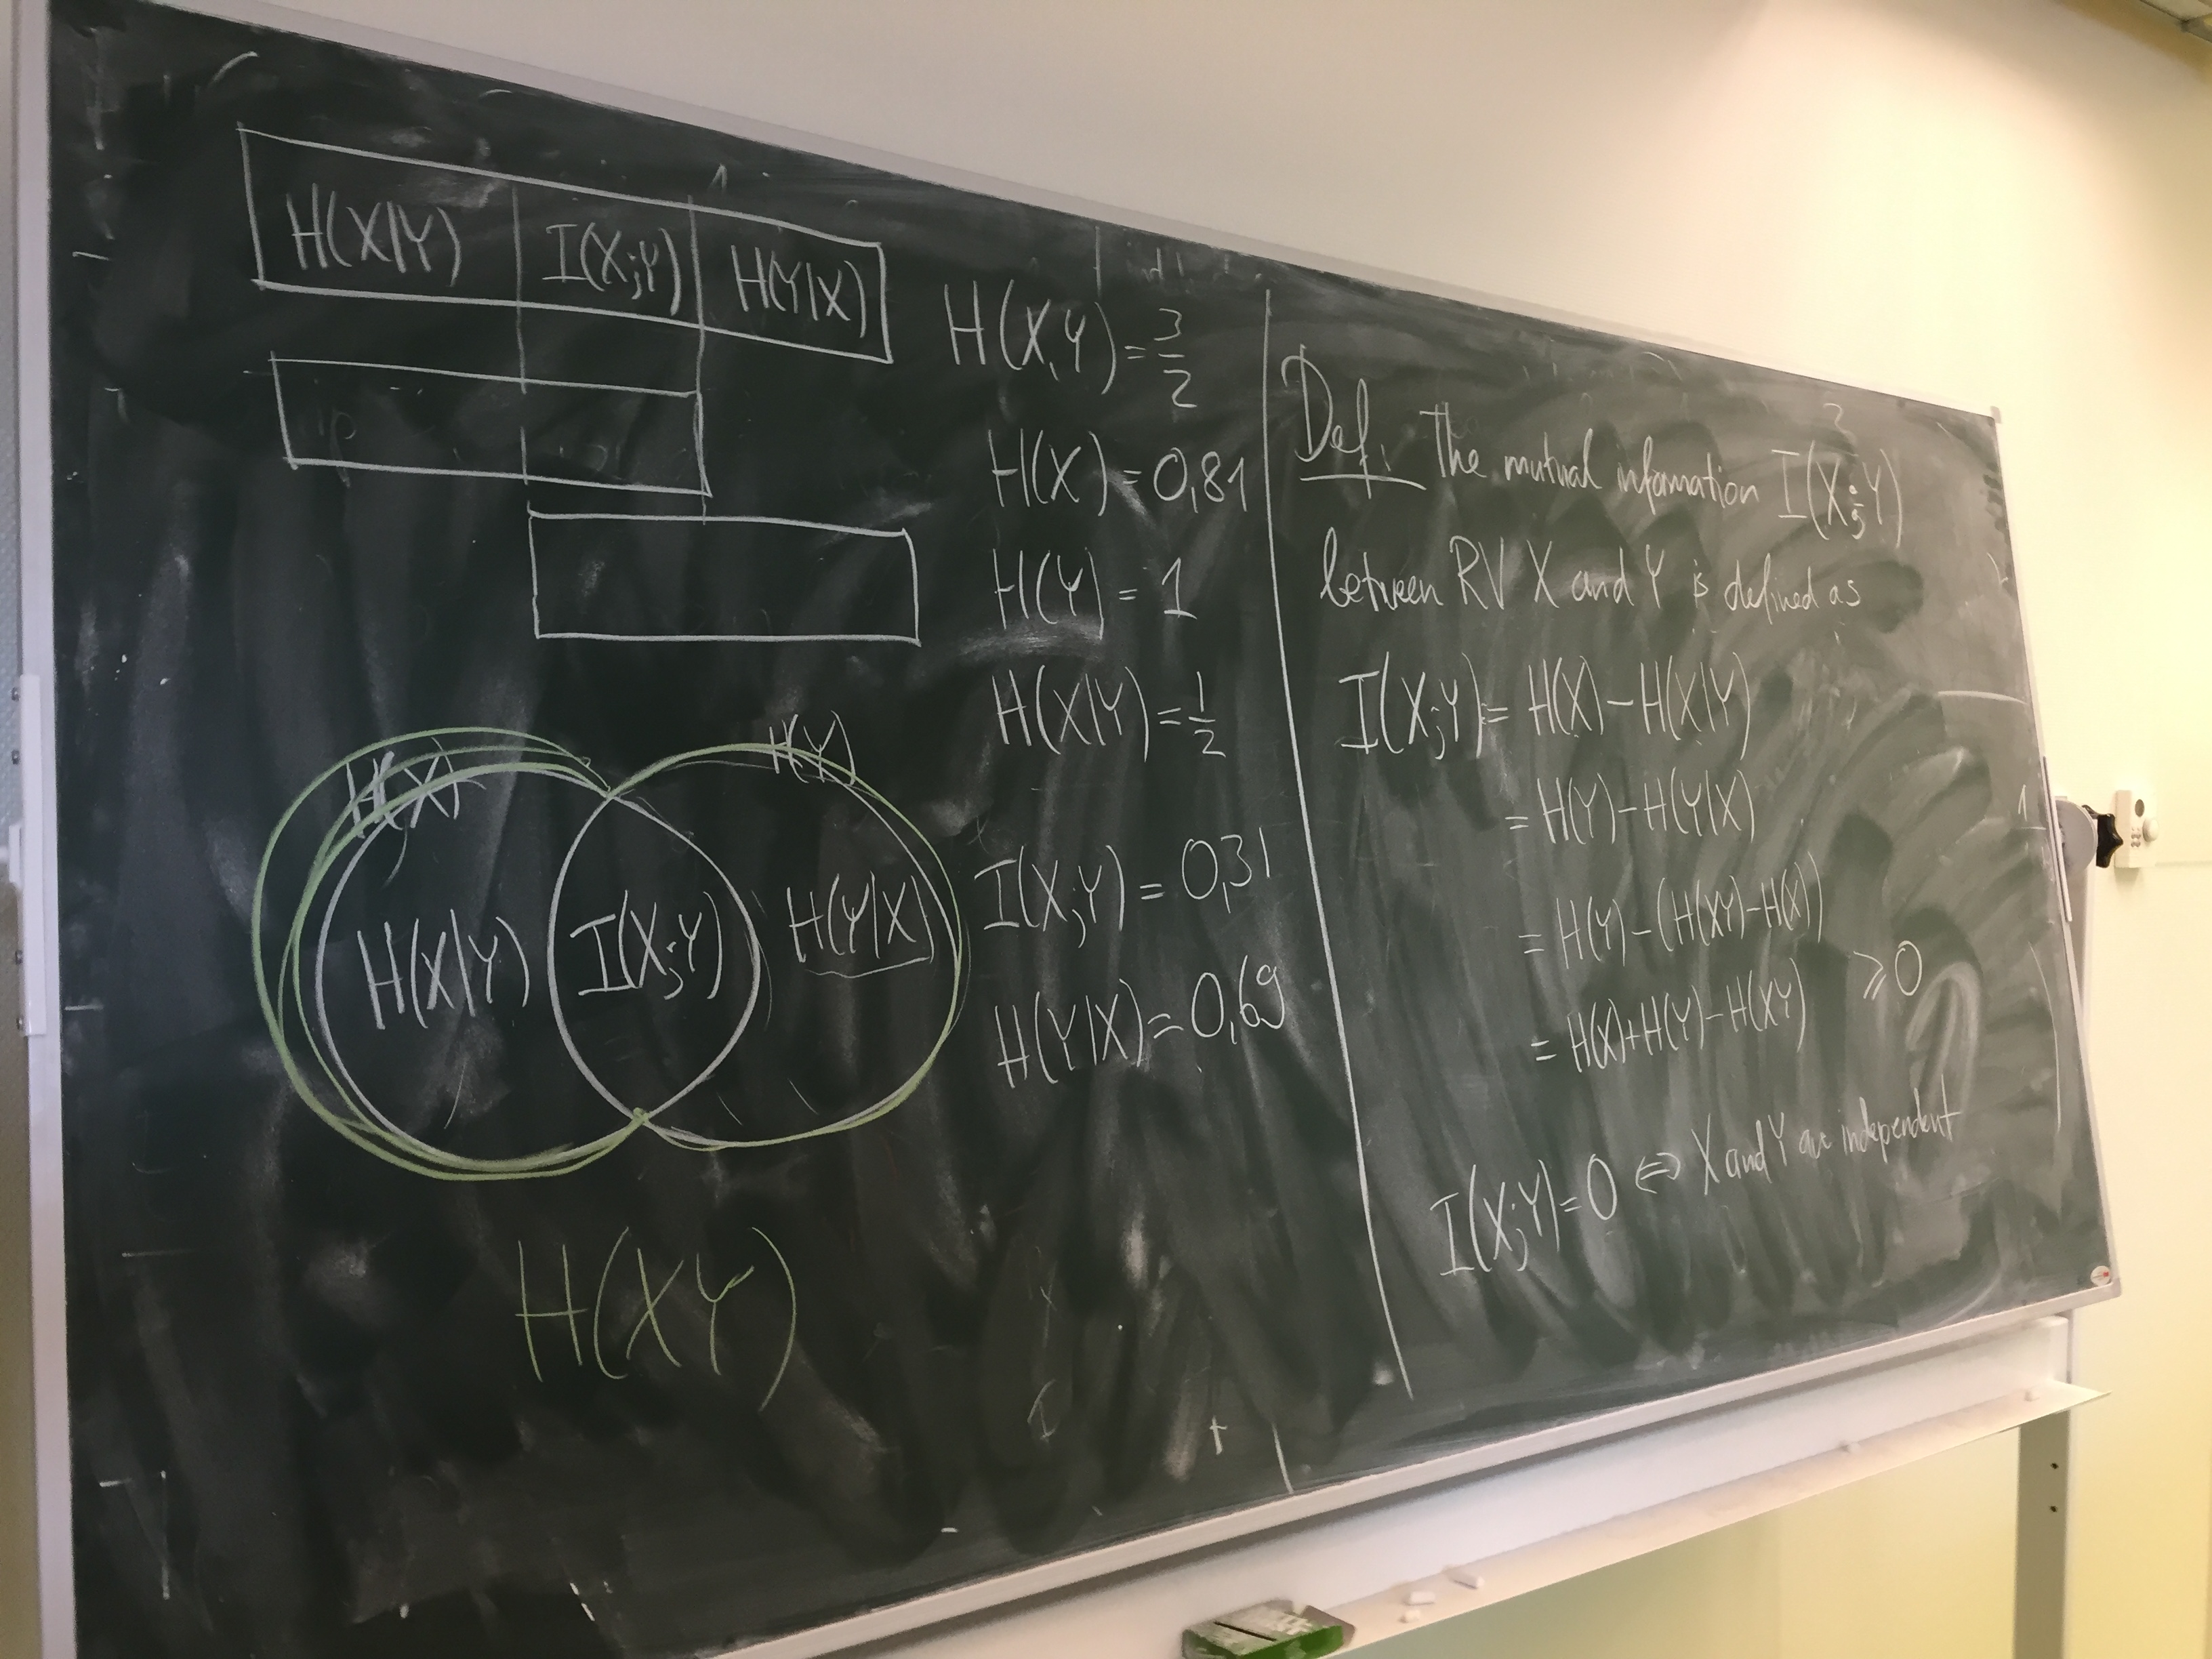 H(X|Y) I(X;Y) H(Y|X)
H(X) H(Y)
H(X|Y) I(X;Y) H(Y|X)
H(XY)
H(XY) = 3/2
H(X) = 0,81
H(Y) = 1
H(X|Y) = 1/2
I(X;Y) = 0,31
H(Y|X) = 0,69
Def. The mutual information I(X;Y)
between RV X and Y is defined as
I(X;Y) = H(X) - H(X|Y)
= H(Y) - H(Y|X)
= H(Y) - (H(XY) - H(X))
= H(X) + H(Y) - H(XY) ⩾ 0
I(X;Y) = 0 ⇔ X and Y are independent